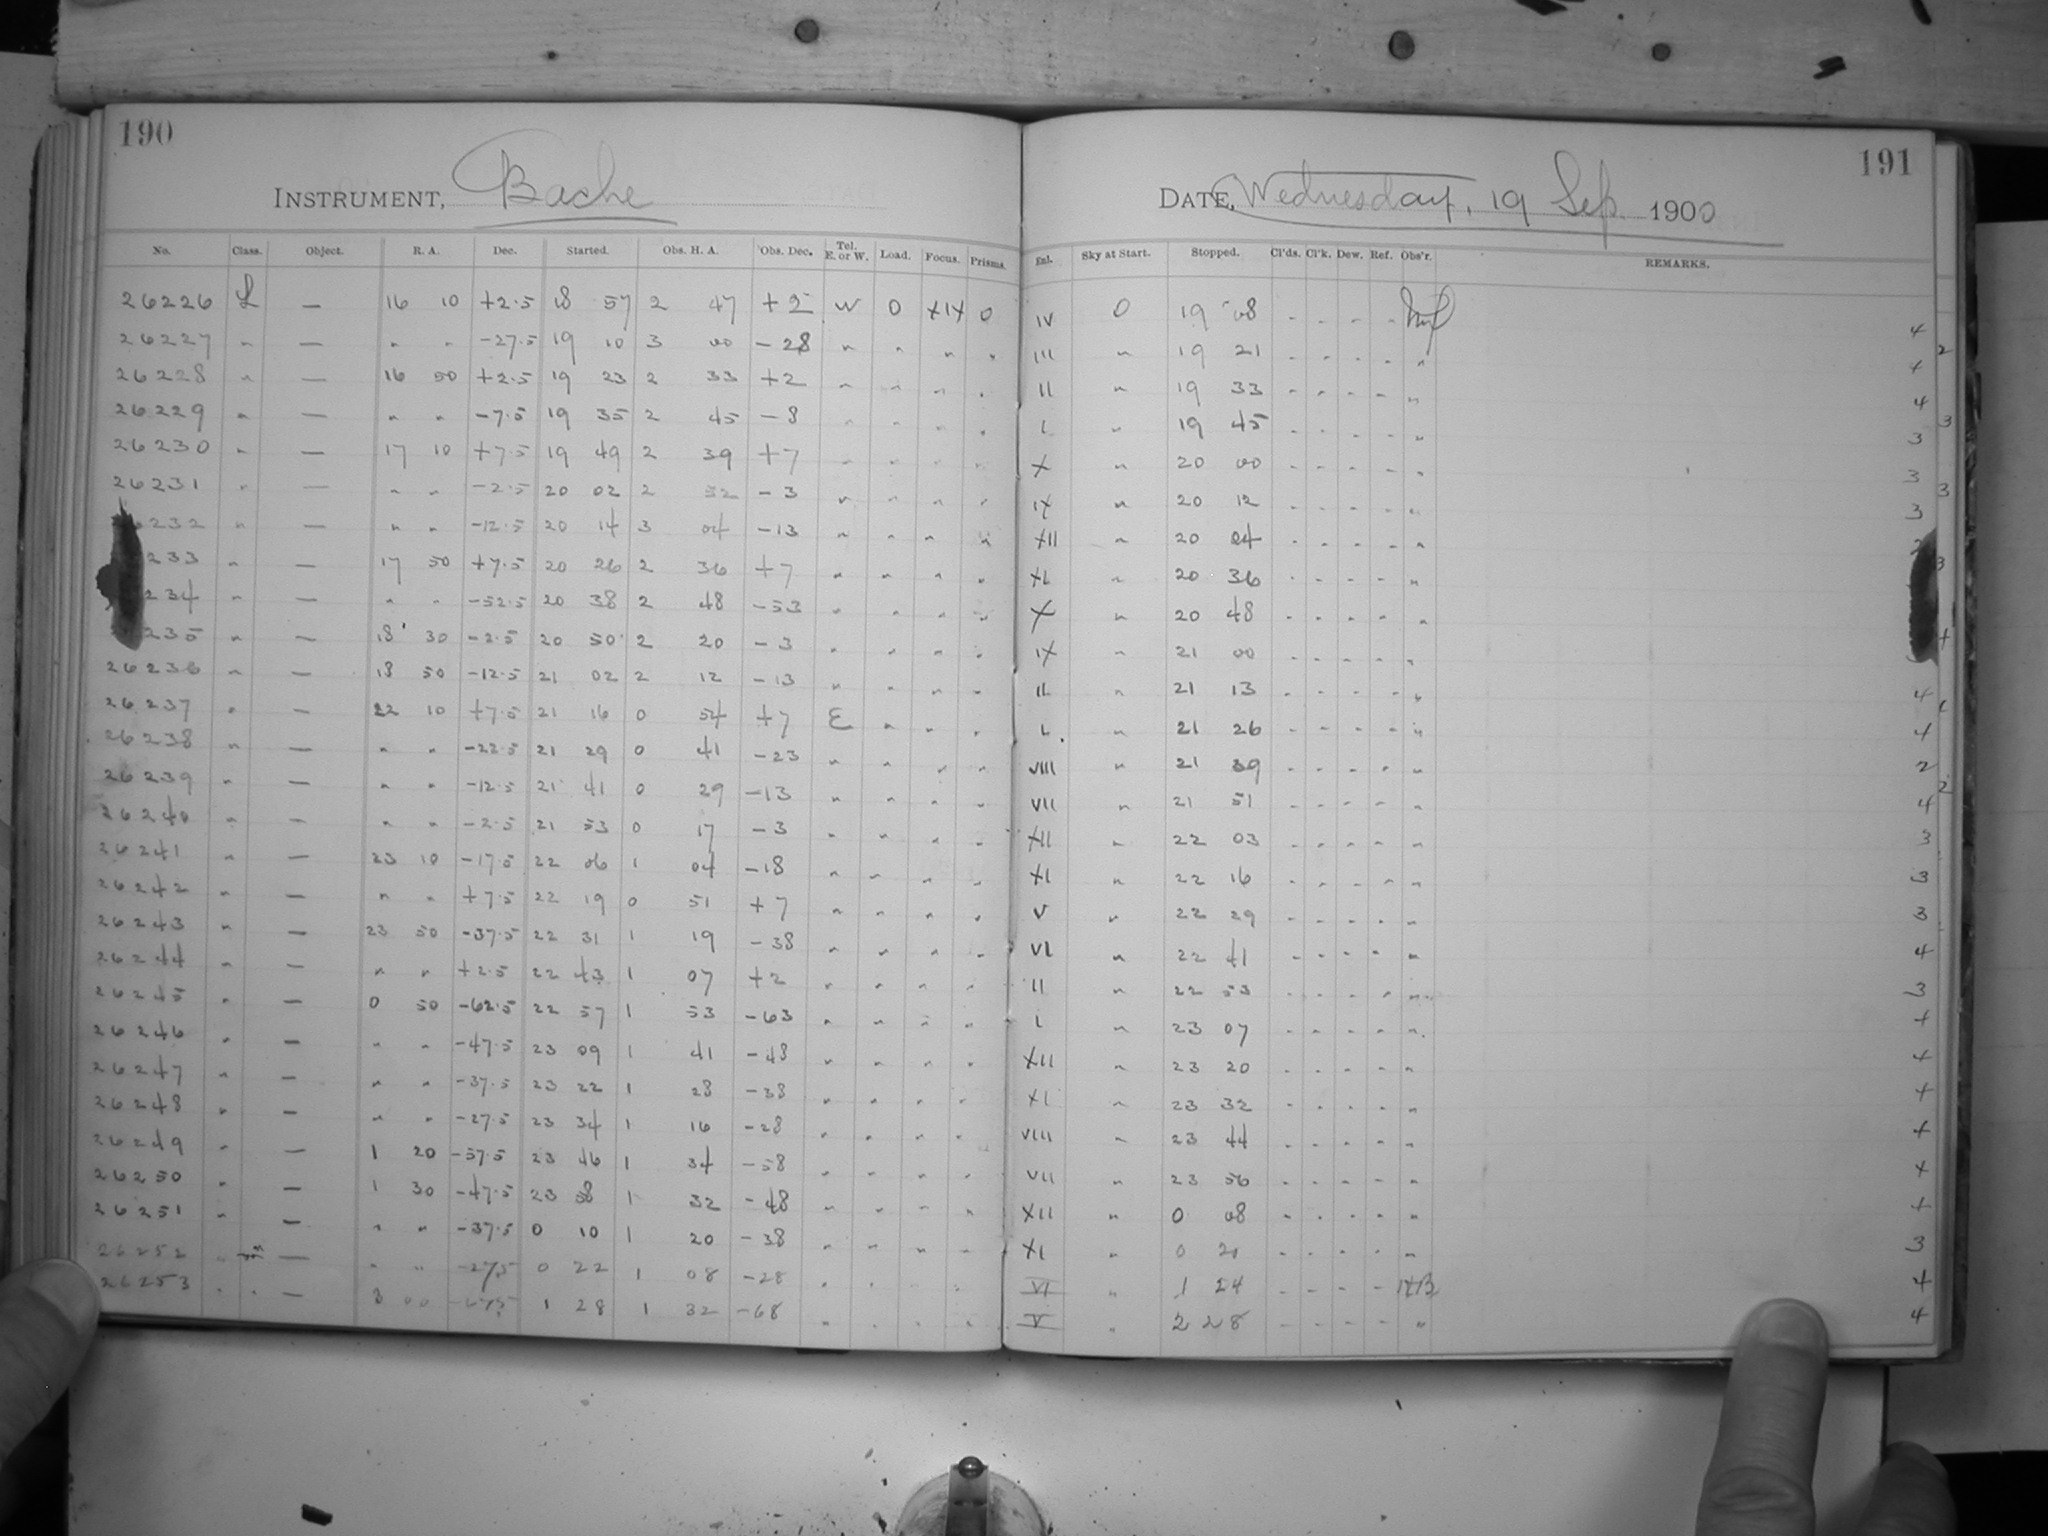 190
INSTRUMENT, Bache
No. Class. Object. R. A. Dec. Started. Obs. H. A. Obs. Dec. Tel. E. or W. Load. Focus. Prisms.
26226 L — 16 10 +2.5 18 57 2 47 +2 W 0 XIX 0
26227 " — " " -27.5 19 10 3 00 -28 " " " "
26228 " — 16 50 +2.5 19 23 2 33 +2 " " " "
26229 " — " " -7.5 19 35 2 45 -8 " " " "
26230 " — 17 10 +7.5 19 49 2 39 +7 " " " "
26231 " — " " -2.5 20 02 2 52 -3 " " " "
6232 " — " " -12.5 20 14 3 04 -13 " " " "
233 " — 17 50 +7.5 20 26 2 36 +7 " " " "
234 " — " " -52.5 20 38 2 48 -53 " " " "
235 " — 18 30 -2.5 20 50 2 20 -3 " " " "
26236 " — 18 50 -12.5 21 02 2 12 -13 " " " "
26237 " — 22 10 +7.5 21 16 0 54 +7 E " " "
26238 " — " " -22.5 21 29 0 41 -23 " " " "
26239 " — " " -12.5 21 41 0 29 -13 " " " "
26240 " — " " -2.5 21 53 0 17 -3 " " " "
26241 " — 23 10 -17.5 22 06 1 04 -18 " " " "
26242 " — " " +7.5 22 19 0 51 +7 " " " "
26243 " — 23 50 -37.5 22 31 1 19 -38 " " " "
26244 " — " " +2.5 22 43 1 07 +2 " " " "
26245 " — 0 50 -62.5 22 57 1 53 -63 " " " "
26246 " — " " -47.5 23 09 1 41 -48 " " " "
26247 " — " " -37.5 23 22 1 28 -38 " " " "
26248 " — " " -27.5 23 34 1 16 -28 " " " "
26249 " — 1 20 -57.5 23 46 1 34 -58 " " " "
26250 " — 1 30 -47.5 23 58 1 32 -48 " " " "
26251 " — " " -37.5 0 10 1 20 -38 " " " "
26252 " — " " -27.5 0 22 1 08 -28 " " " "
26253 " — 3 00 1 28 1 32 -68 " " " "
191
DATE, Wednesday, 19 Sep. 1900
Enl. Sky at Start. Stopped. Cl'ds. Cl'k. Dew. Ref. Obs'r. REMARKS.
IV 0 19 08 - - - - 4
III " 19 21 - - - - " 4
II " 19 33 - - - - " 4
I " 19 45 - - - - " 3
X " 20 00 - - - - " 3
IX " 20 12 - - - - " 3
XII " 20 24 - - - - "
XI " 20 36 - - - - "
X " 20 48 - - - - "
IX " 21 00 - - - - "
II " 21 13 - - - - " 4
I " 21 26 - - - - " 4
VIII " 21 39 - - - - " 2
VII " 21 51 - - - - " 4
XII " 22 03 - - - - " 3
XI " 22 16 - - - - " 3
V " 22 29 - - - - " 3
VI " 22 41 - - - - " 4
II " 22 53 - - - - " 3
I " 23 07 - - - - " 4
XII " 23 20 - - - - " 4
XI " 23 32 - - - - " 4
VIII " 23 44 - - - - " 4
VII " 23 56 - - - - " 4
XII " 0 08 - - - - " 4
XI " 0 20 - - - - " 3
VI " 1 24 - - - - HB 4
V " 2 28 - - - - " 4